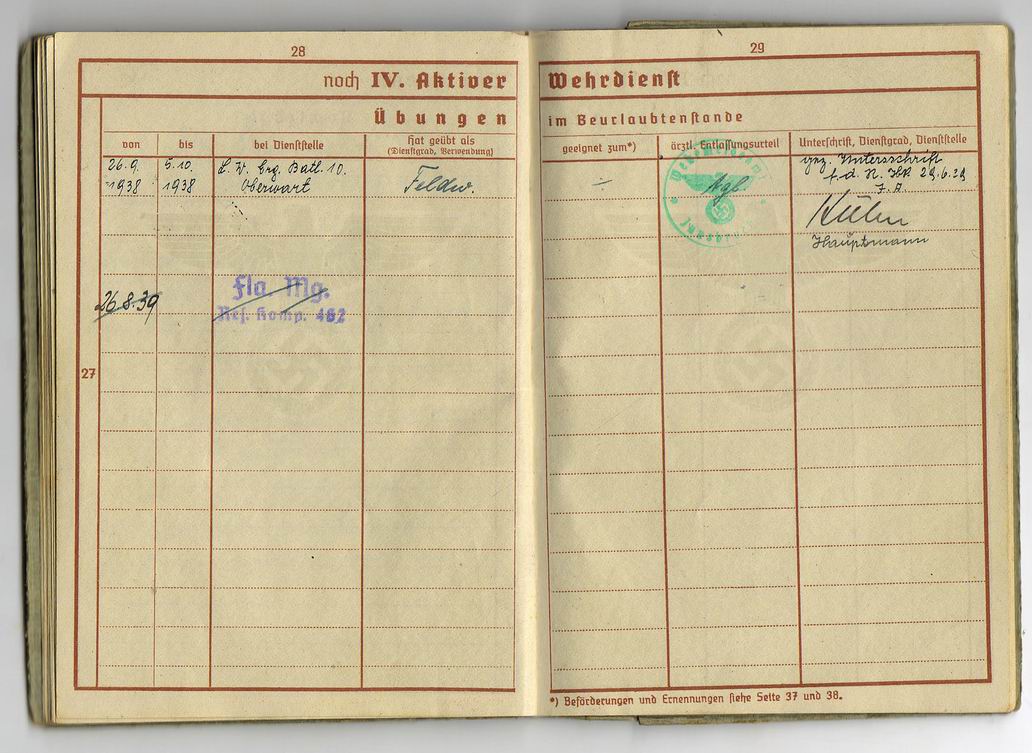 28
noch IV. Aktiver
Übungen
von
bis
bei Dienststelle
Hat geübt als
(Dienstgrad, Verwendung)
26.9. 5.10. L. W. Erg. Batl. 10.
1938 1938 Oberwart
Feldw.
26.8.39
Fla. Mg.
Res. Komp. 462
27
29
Wehrdienst
im Beurlaubtenstande
geeignet zum*)
ärztl. Entlassungsurteil
Unterschrift, Dienstgrad, Dienststelle
gez. Unterschrift
f. d. R.
J. A.
Hauptmann
*) Beförderungen und Ernennungen siehe Seite 37 und 38.